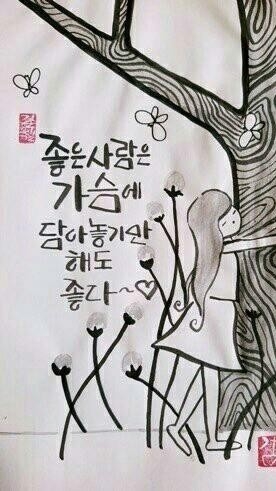 좋은사람은
가슴에
담아놓기만
해도
좋다~♡